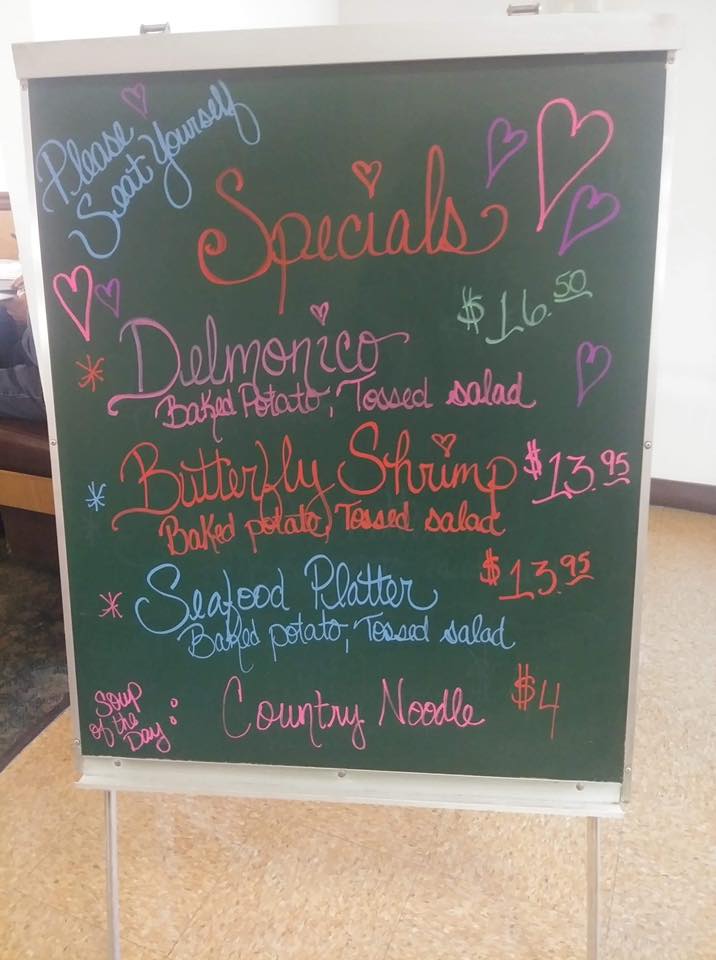 Please
Seat Yourself
Specials
$16.50
Delmonico
Baked Potato, Tossed salad
Butterfly Shrimp $13.95
Baked potato, Tossed salad
$13.95
Seafood Platter
Baked potato, Tossed salad
Soup of the Day: Country Noodle $4